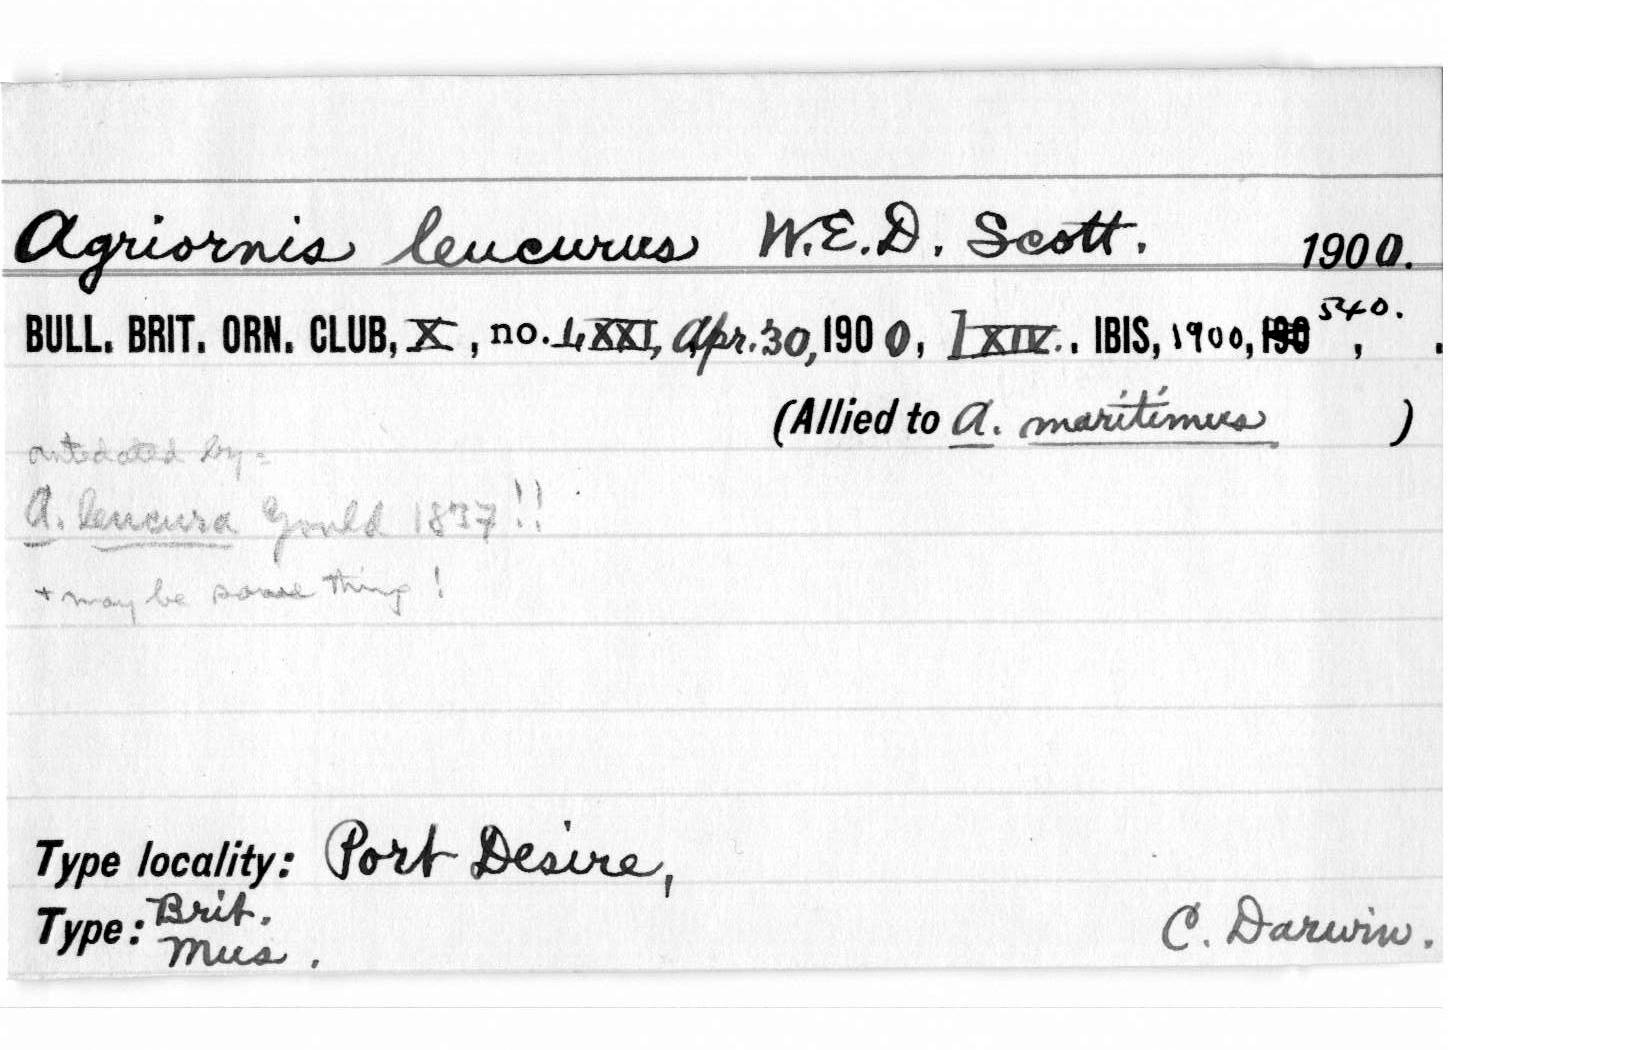 Agriornis leucurus W.E.D. Scott. 1900.
BULL. BRIT. ORN. CLUB, X, no. LXXI, Apr. 30, 1900, LXIV. . IBIS, 1900, 540. , .
(Allied to A. maritimus )
antedated by =
A. leucura Gould 1837!!
+ may be same thing!
Type locality: Port Desire,
Type: Brit. Mus. C. Darwin.